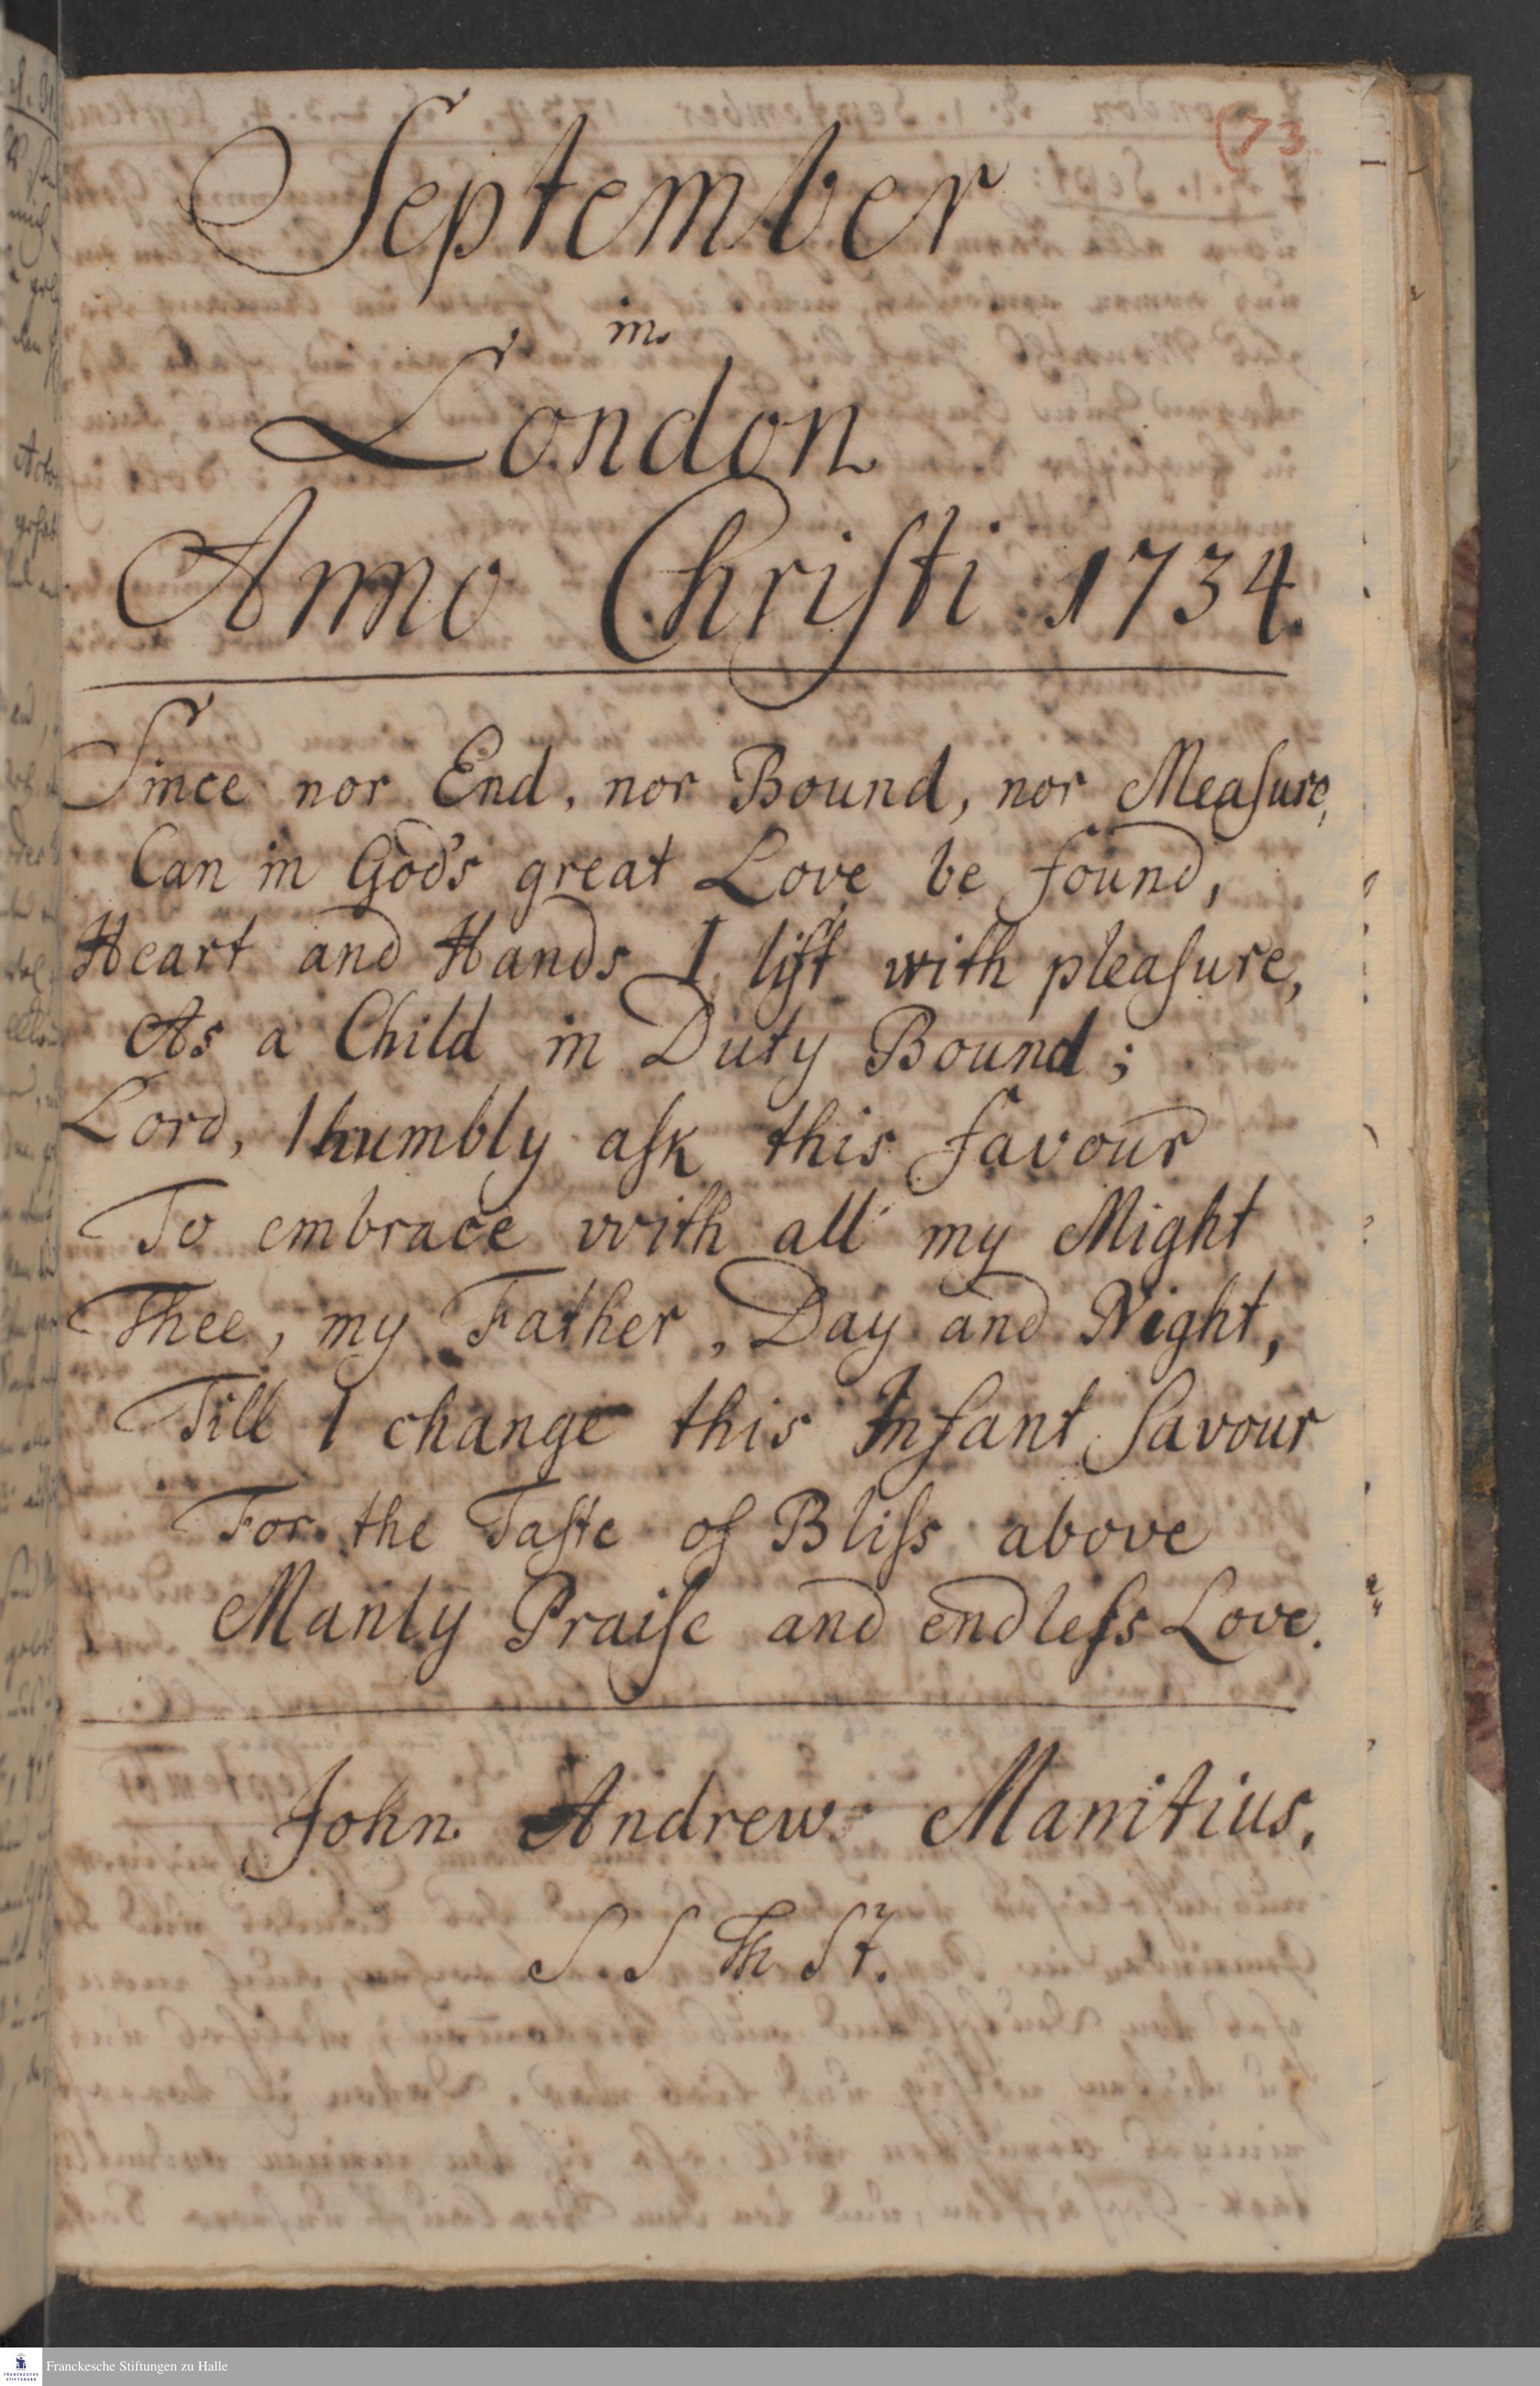 (73.
September
in
London
Anno Christi 1734.
Since nor End, nor Bound, nor Measure,
Can in God's great Love be found,
Heart and Hands I lift with pleasure,
As a Child in Duty Bound;
Lord, I humbly ask this favour
To embrace with all my Might
Thee, my Father, Day and Night,
Till I change this Infant Savour
For the Taste of Bliss above
Manly Praise and endless Love.
John Andrew Manitius.
S. S. Th. St.
Franckesche Stiftungen zu Halle